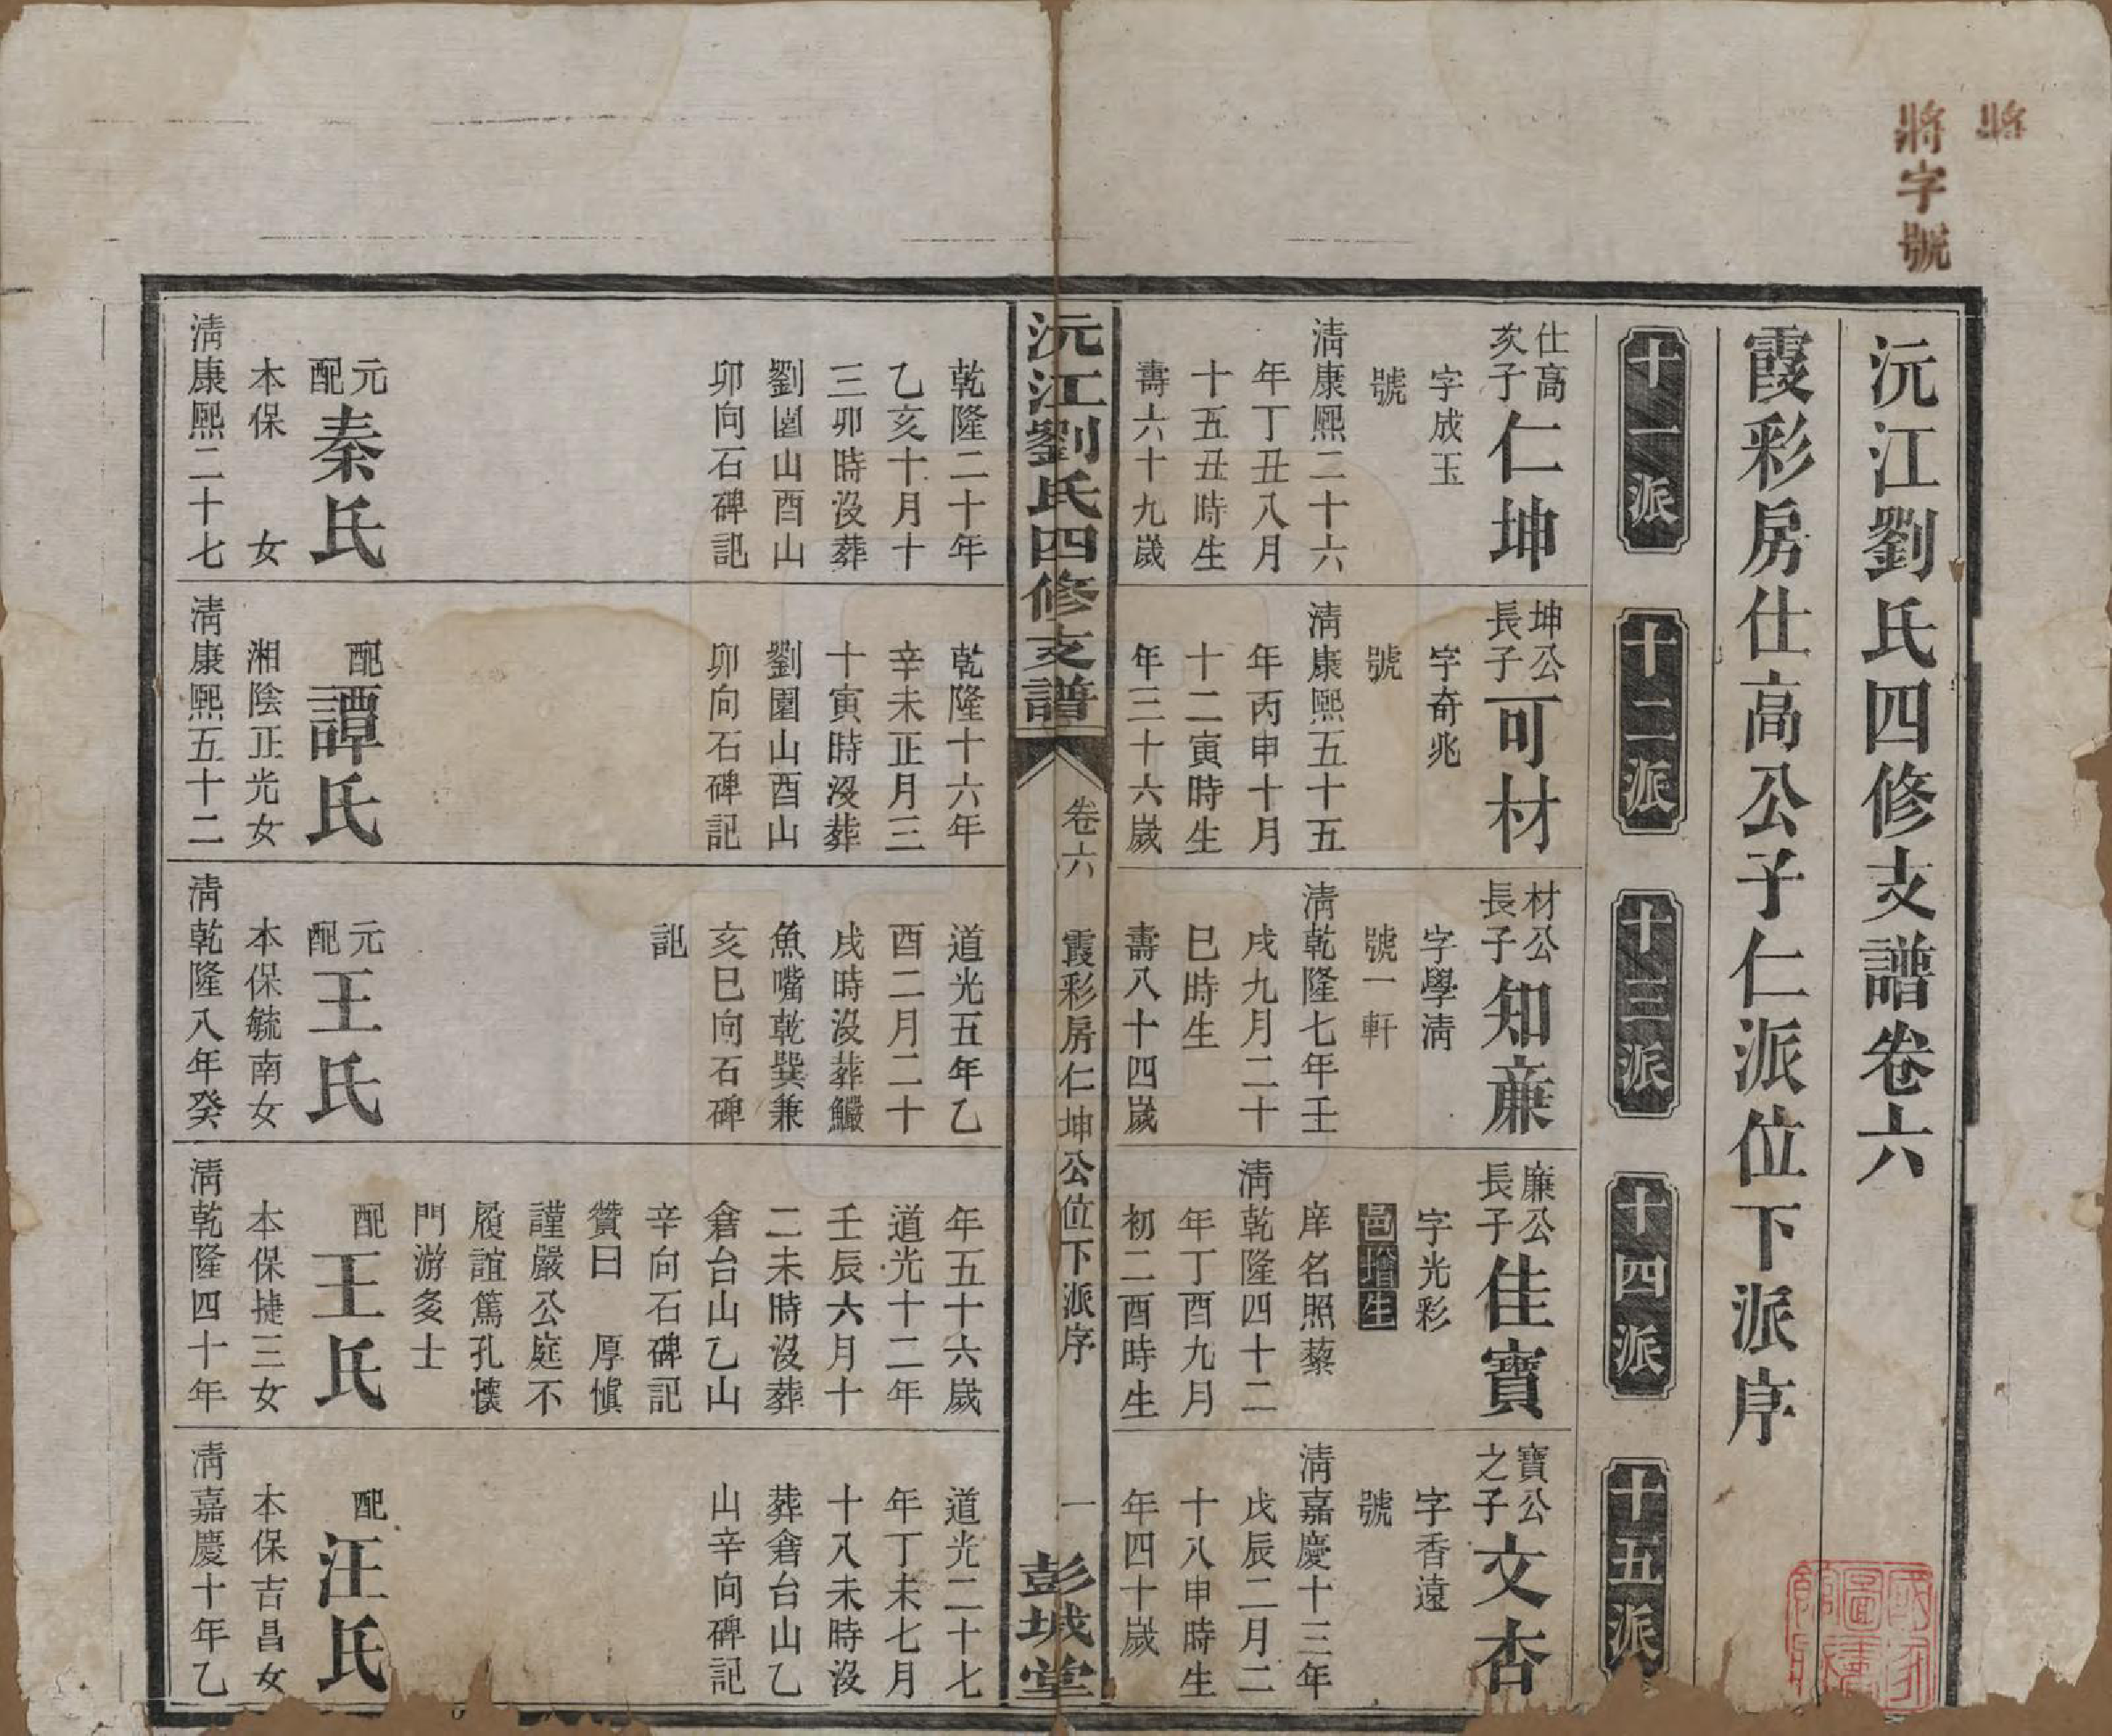 將
將字號
沅江劉氏四修支譜卷六
霞彩房仕高公子仁派位下派序
十一派
十二派
十三派
十四派
十五派
仕高
亥子
仁坤
字成玉
號
清康熙二十六
年丁丑八月
十五丑時生
壽六十九歲
乾隆二十年
乙亥十月十
三卯時沒葬
劉園山酉山
卯向石碑記
元
配
秦氏
本保　女
清康熙二十七
坤公
長子
可材
字奇兆
號
清康熙五十五
年丙申十月
十二寅時生
年三十六歲
乾隆十六年
辛未正月三
十寅時沒葬
劉園山酉山
卯向石碑記
配
譚氏
湘陰正光女
清康熙五十二
材公
長子
知亷
字學清
號一軒
清乾隆七年壬
戌九月二十
巳時生
壽八十四歲
道光五年乙
酉二月二十
戌時沒葬鱲
魚嘴乾巽兼
亥巳向石碑
記
元
配
王氏
本保毓南女
清乾隆八年癸
廉公
長子
佳寶
字光彩
邑增生
庠名照藜
清乾隆四十二
年丁酉九月
初二酉時生
年五十六歲
道光十二年
壬辰六月十
二未時沒葬
倉台山乙山
辛向石碑記
贊曰　厚愼
謹嚴公庭不
履誼篤孔懷
門游多士
配
王氏
本保捷三女
清乾隆四十年
寶公
之子
文杏
字香遠
號
清嘉慶十三年
戊辰二月二
十八申時生
年四十歲
道光二十七
年丁未七月
十八未時沒
葬倉台山乙
山辛向碑記
配
汪氏
本保吉昌女
清嘉慶十年乙
沅江劉氏四修支譜
卷六
霞彩房仁坤公位下派序
一
彭城堂